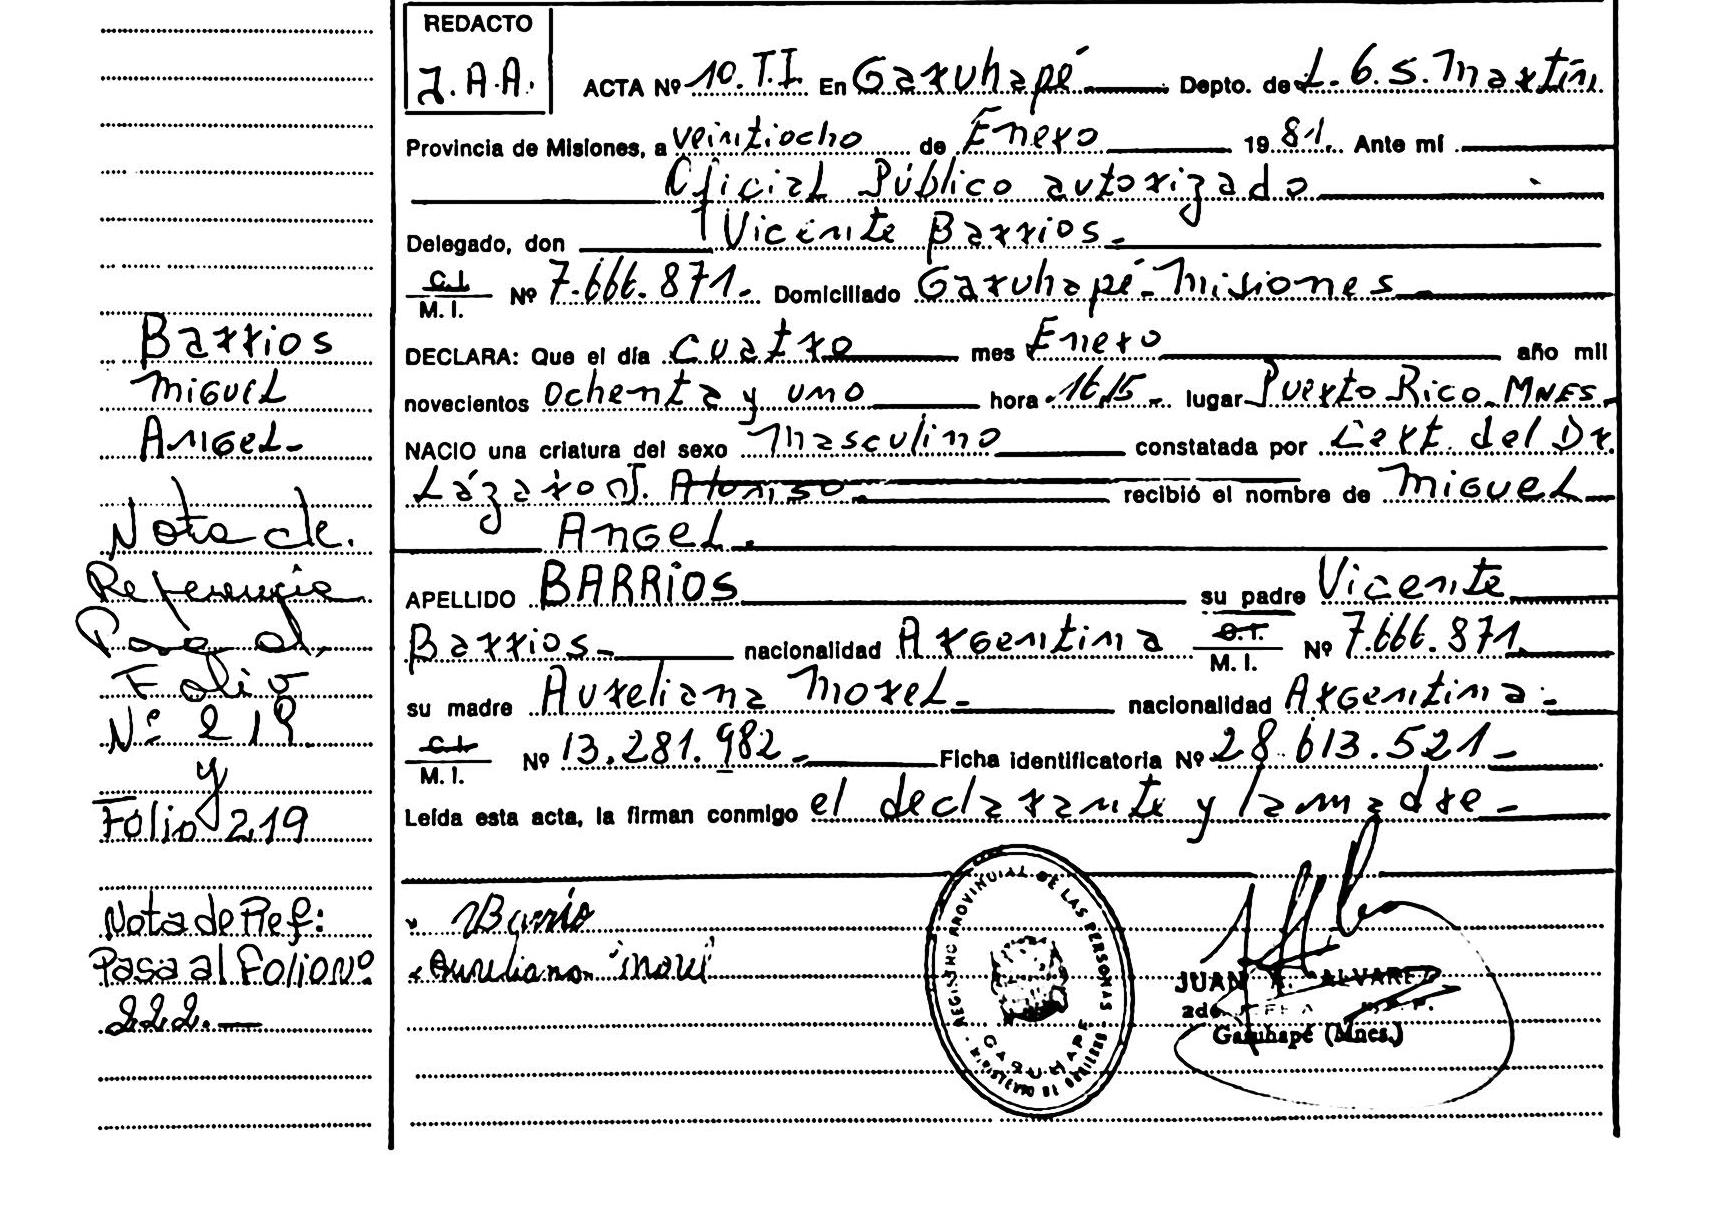 REDACTO
J.A.A.
ACTA Nº 10.T.I En Garuhapé Depto. de L.G.S.Martín
Provincia de Misiones, a veintiocho de Enero 1981. Ante mí
Oficial Público autorizado
Delegado, don Vicente Barrios.-
C.I. M.I. Nº 7.666.871.- Domiciliado Garuhapé-Misiones
DECLARA: Que el día cuatro mes Enero año mil
novecientos ochenta y uno hora 16,15- lugar Puerto Rico-MNES.
NACIO una criatura del sexo Masculino constatada por Cert. del Dr.
Lázaro J. Alonso recibió el nombre de MIGUEL
ANGEL.
APELLIDO BARRIOS su padre Vicente
Barrios- nacionalidad Argentina C.I. M.I. Nº 7.666.871
su madre Aureliana Morel- nacionalidad Argentina-
C.I. M.I. Nº 13.281.982- Ficha identificatoria Nº 28.613.521-
Leída esta acta, la firman conmigo el declarante y la madre-
Barrios
Miguel
Angel-
Nota de
Referencia
Pasa al
Folio
Nº 219
y
Folio 219
Nota de Ref:
Pasa al Folio Nº
222.-
VBarrio
Aureliana Morel
REGISTRO PROVINCIAL DE LAS PERSONAS
GARUHAPE
MINISTERIO DE GOBIERNO
JUAN A. ALVAREZ
Garuhapé (Mnes.)